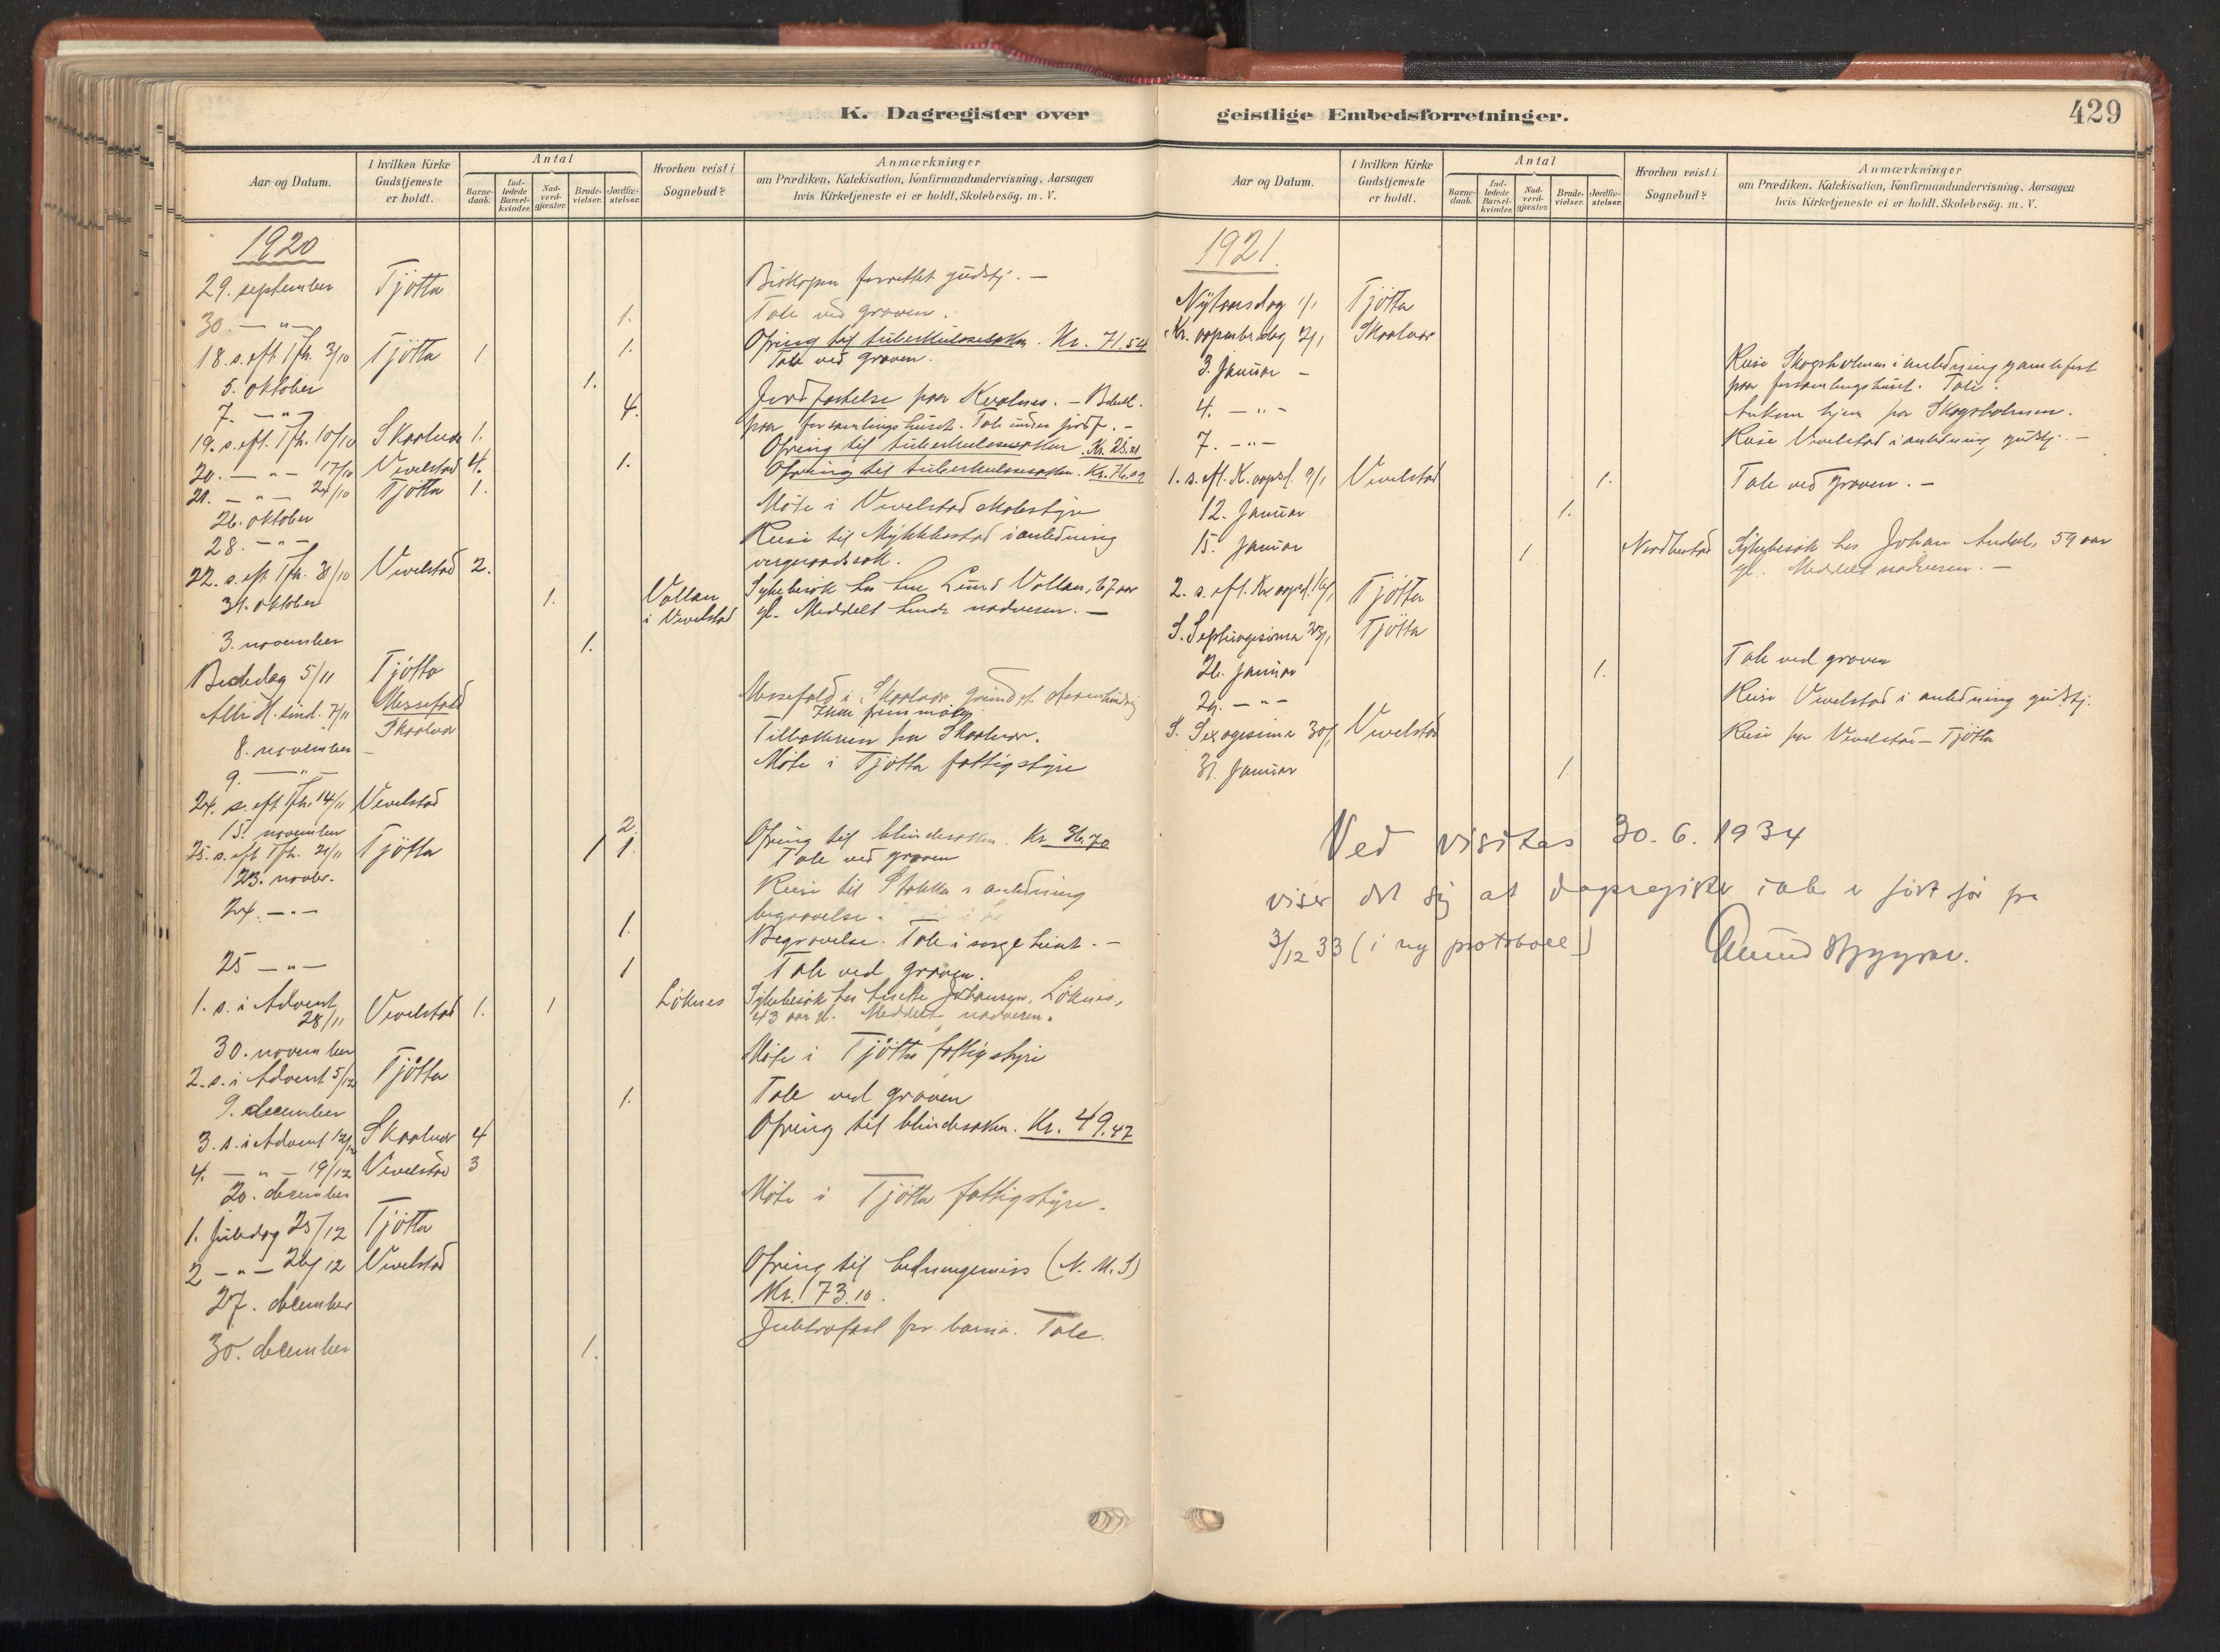 K. Dagregister over
Aar og Datum.
I hvilken Kirke Gudstjeneste er holdt.
Antal
Barnedaab.
Indledede Barselkvinder.
Nadverdgjæster.
Brudevielser.
Jordfæstelser.
Hvorhen reist i Sognebud?
Anmærkninger
om Prædiken, Katekisation, Konfirmandundervisning, Aarsagen
hvis Kirketjeneste ei er holdt, Skolebesøg. m. V.
1920
29. september Tjötta Biskopen forrettet gudstj. —
30. — " — 1. Tale ved graven.
18. s. eft. Tfh. 3/10 Tjötta 1 1. Ofring til tuberkulosesaken. Kr. 71.54
Tale ved graven.
5. oktober 1.
7. — " — 4. Jordfæstelse paa Kvalnes. —
paa forsamlingshuset. Tale under jordf. —
19. s. eft. Tfh. 10/10 Skaalvær 1. Ofring til tuberkulosesaken. Kr. 25.21
20. — " — 17/10 Vevelstad 4. 1. Ofring til tuberkulosesaken. Kr. 76.02
21. — " — 24/10 Tjötta 1.
26. oktober Möte i Vevelstad skolestyre
28. — " — Reise til Mykkebostad i anledning
vergeraadssak.
22. s. eft. Tfh. 31/10 Vevelstad 2.
31. oktober 1. Vollan Sykebesök hos Lund Vollan, 67 aar
i Vevelstad gl. Meddelt nadveren. —
3. november 1.
Bededag 5/11 Tjötta
Alle H. sönd. 7/11 Messefald Messefald i Skaalvær grundet
Skaalvær Ikke fremmöte
8. november — Tilbakereise fra Skaalvær.
9. — " — Möte i Tjötta fattigstyre
24. s. eft. Tfh. 14/11 Vevelstad
15. november 2.
25. s. eft. Tfh. 21/11 Tjötta 1 1. Ofring til blindesaken. Kr. 36.70
Tale ved graven
23. novbr. Reise til Stokka i anledning
begravelse.
24. — " — 1. Begravelse. Tale i sørgehuset. —
25 — " — 1 Tale ved graven.
1. s. i Advent 28/11 Vevelstad 1. 1 Löknes Sykebesök hos Johansen, Löknes,
43 aar gl. Meddelt nadveren.
30. november Möte i Tjötta fattigstyre
2. s. i Advent 5/12 Tjötta
9. december 1. Tale ved graven
3. s. i Advent 12/12 Skaalvær 4 Ofring til blindesaken. Kr. 49.47
4. — " — 19/12 Vevelstad 3
20. december Möte i Tjötta fattigstyre.
1. Juledag 25/12 Tjötta
2 — " — 26/12 Vevelstad Ofring til hedningemiss (N. M. S)
Kr. 73.10.
27. december Juletræfest for barna. Tale.
30. december 1.
geistlige Embedsforretninger.
429
Aar og Datum.
I hvilken Kirke Gudstjeneste er holdt.
Antal
Barnedaab.
Indledede Barselkvinder.
Nadverdgjæster.
Brudevielser.
Jordfæstelser.
Hvorhen reist i Sognebud?
Anmærkninger
om Prædiken, Katekisation, Konfirmandundervisning, Aarsagen
hvis Kirketjeneste ei er holdt, Skolebesøg. m. V.
1921.
Nytaarsdag 1/1 Tjötta
Kr. aapenb. dag 2/1 Skaalvær
3. Januar — Reise Skogsholmen i anledning gamlefest
paa forsamlingshuset. Tale.
4. — " — Ankom hjem fra Skogsholmen.
7. — " — Reise Vevelstad i anledning gudstj. —
1. s. eft. K. aapb. 9/1 Vevelstad 1. Tale ved graven. —
12. Januar 1.
15. Januar 1 Nordbostad Sykebesök hos Johan Andal, 59 aar
gl. Meddelt nadveren. —
2. s. eft. Kr aapb. 16/1 Tjötta
S. Septuagesima 23/1 Tjötta
26. Januar 1. Tale ved graven
29. — " — Reise Vevelstad i anledning gudstj.
S. Sexagesima 30/1 Vevelstad Reise fra Vevelstad — Tjötta
31. Januar 1.
Ved visitas 30. 6. 1934
viser det sig at dagregister ikke er fört før fra
3/12 33 (i ny protokoll)